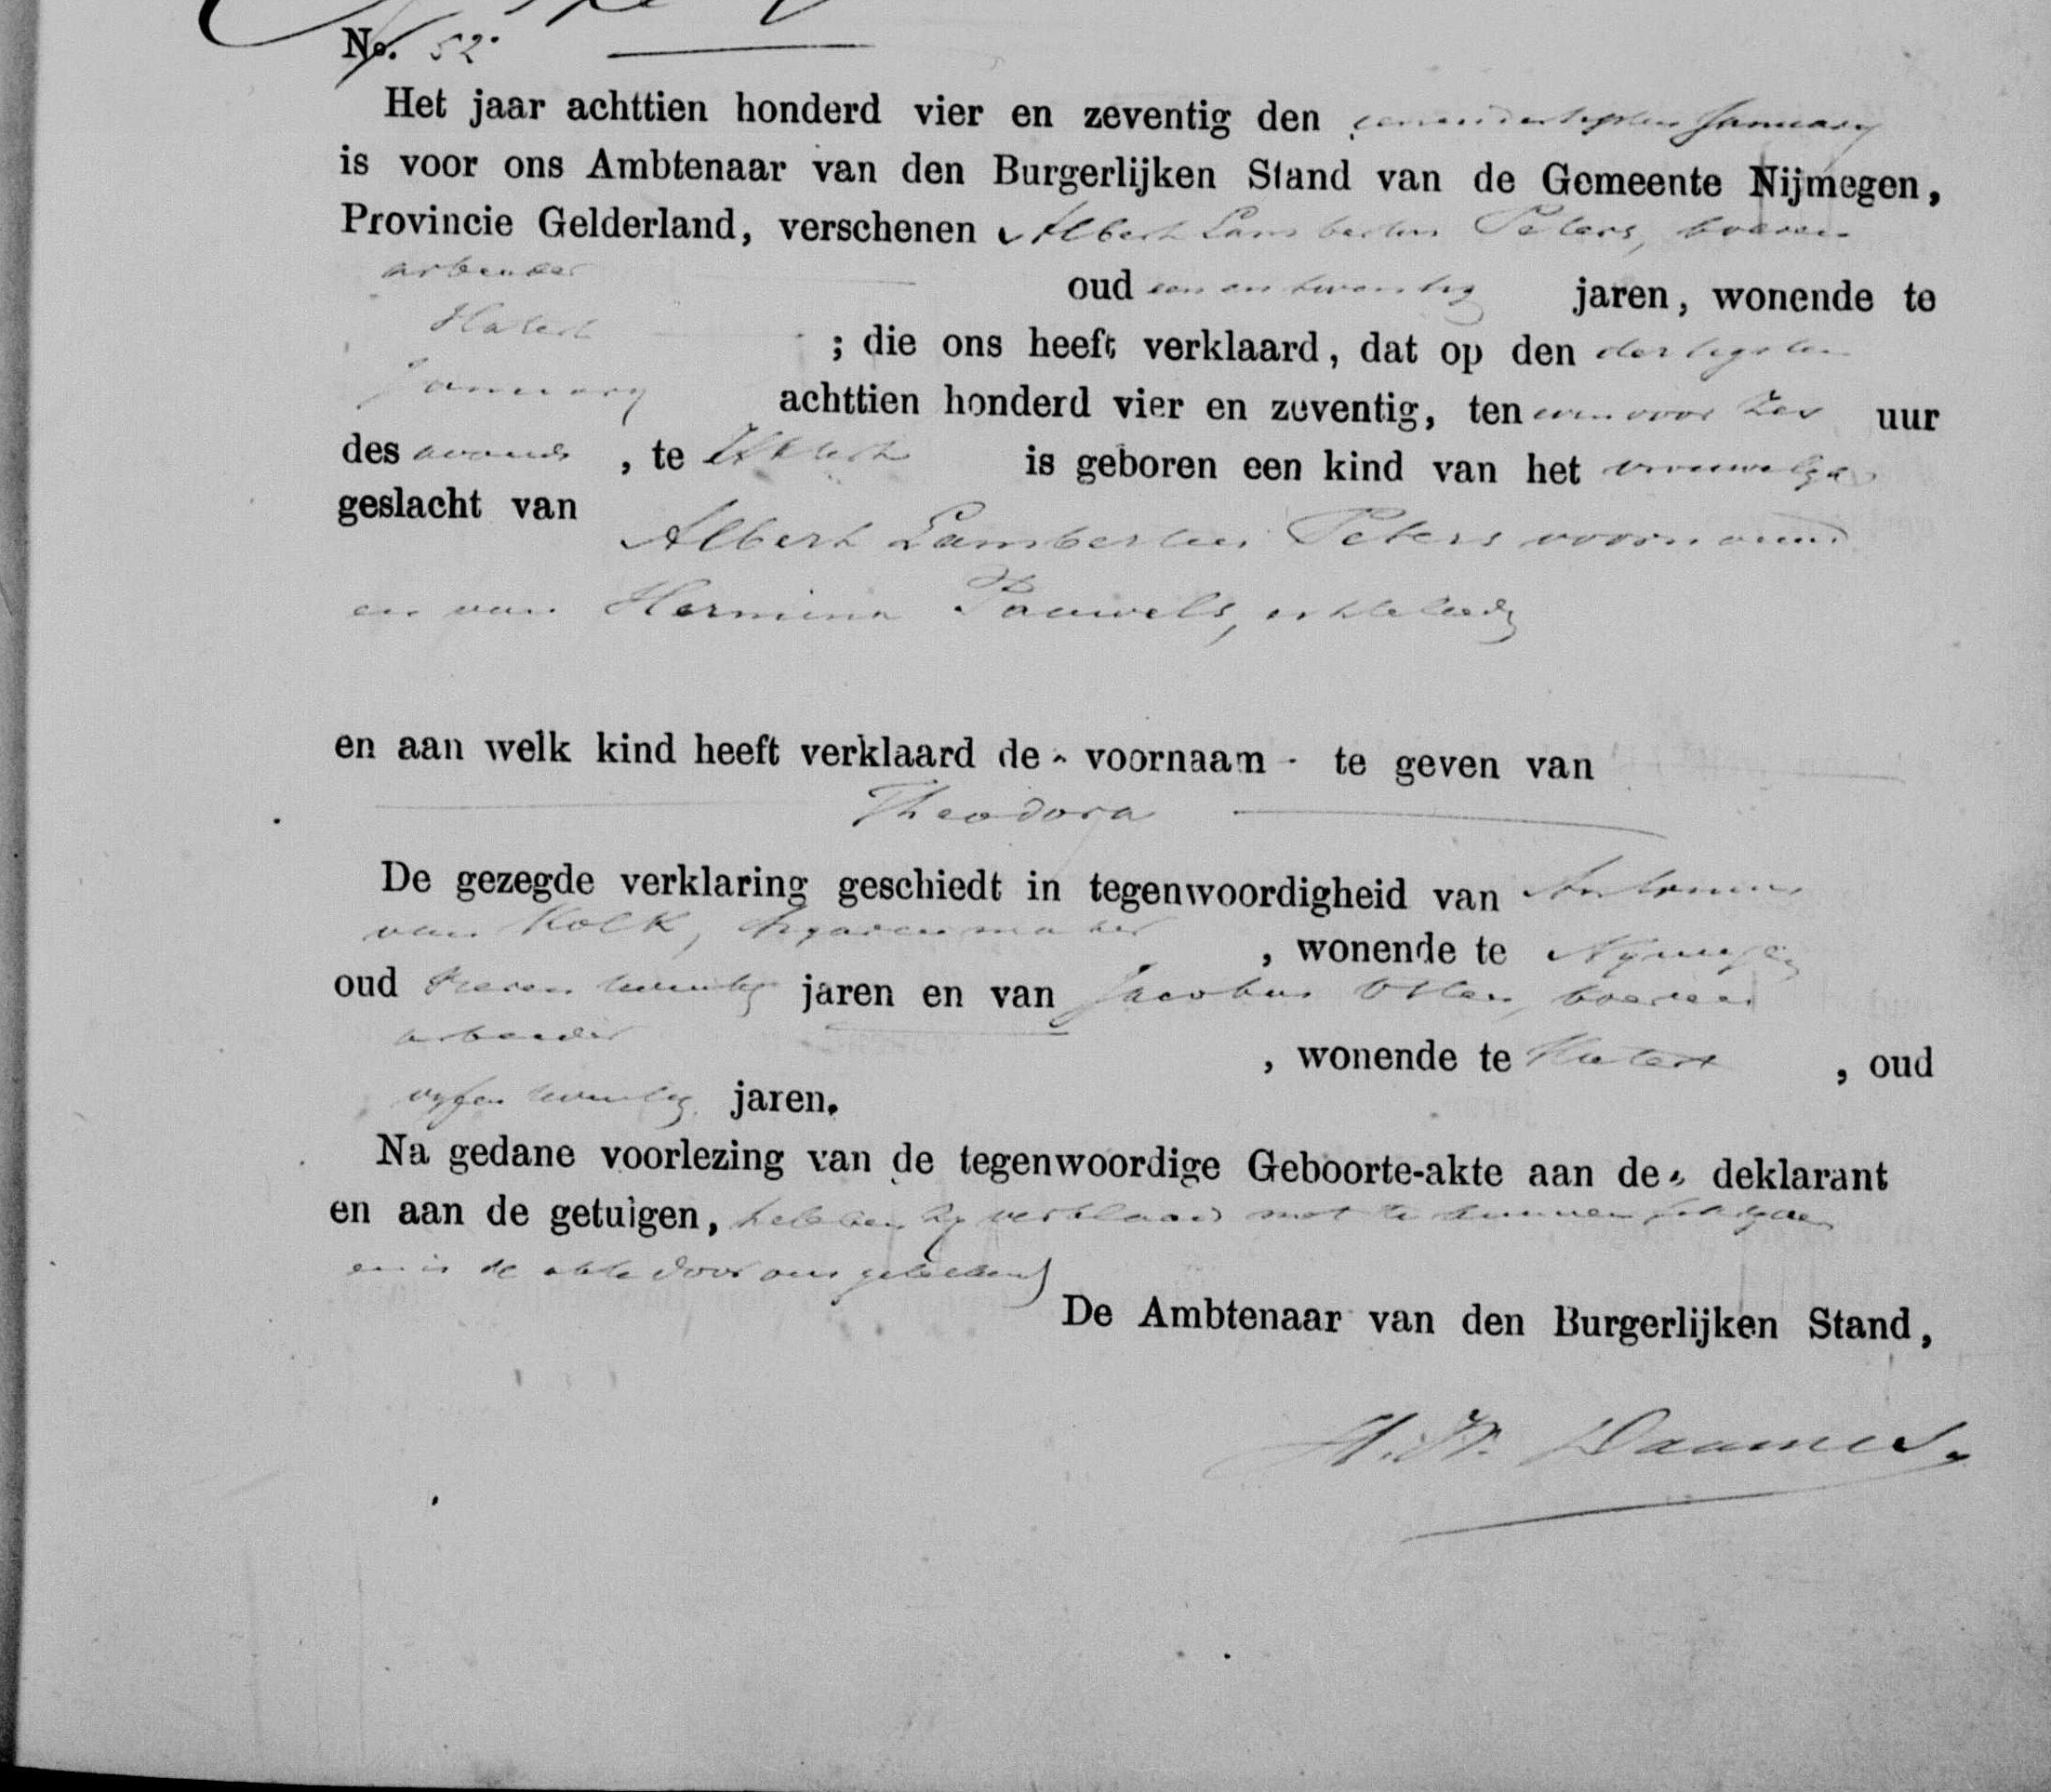 No. 52.
Het jaar achttien honderd vier en zeventig den eenendertigsten January
is voor ons Ambtenaar van den Burgerlijken Stand van de Gemeente Nijmegen,
Provincie Gelderland, verschenen Albert Lambertus Peters, boeren
arbeider oud een en twintig jaren, wonende te
Hatert ; die ons heeft verklaard, dat op den dertigsten
January achttien honderd vier en zeventig, ten voor zes uur
des avonds , te Hatert is geboren een kind van het vrouwelyk
geslacht van
Albert Lambertus Peters voornoemd
en van Hermina Pauwels, echtelieden
en aan welk kind heeft verklaard de voornaam te geven van
Theodora
De gezegde verklaring geschiedt in tegenwoordigheid van Antonius
van Kolk, sigarenmaker , wonende te Nymegen
oud jaren en van Jacobus boeren
arbeider , wonende te Hatert , oud
vyf en twintig jaren.
Na gedane voorlezing van de tegenwoordige Geboorte-akte aan de deklarant
en aan de getuigen, hebben zy verklaard niet te kunnen
en is de akte door ons geteekend
De Ambtenaar van den Burgerlijken Stand,